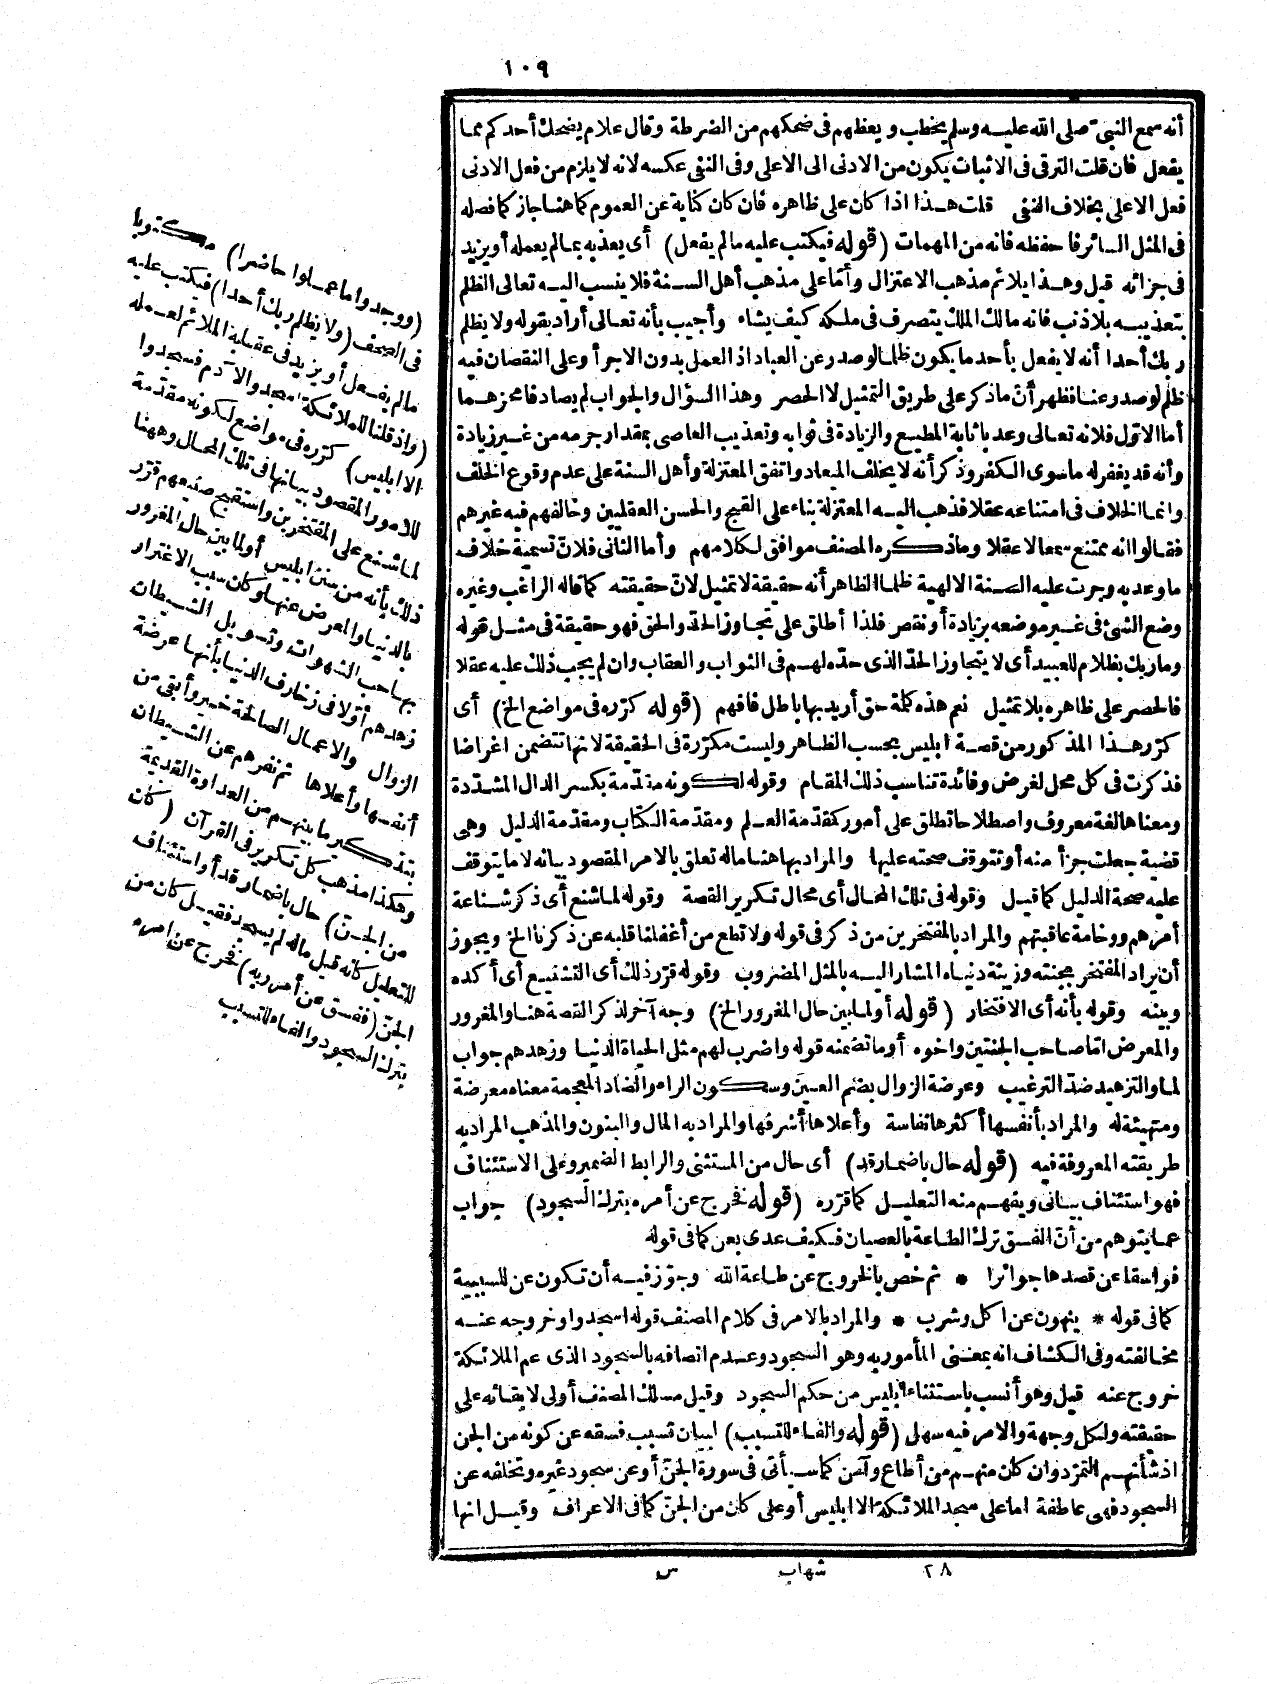 ١٠٩
أنه سمع النبيّ صلى الله عليه وسلم يخطب ويعظهم فى ضحكهم من الضرطة وقال علام يضحك أحدكم مما
يفعل فان قلت الترقى فى الاثبات يكون من الادنى الى الاعلى وفى النفى عكسه لانه لا يلزم من فعل الادنى
فعل الاعلى بخلاف النفى قلت هذا اذا كان على ظاهره فان كان كناية عن العموم كما هنا جاز كما فصله
فى المثل السائر فاحفظه فانه من المهمات (قوله فيكتب عليه ما لم يفعل) أى يعذبه بما لم يعمله أو يزيد
فى جزائه قيل وهذا يلائم مذهب الاعتزال وأمّا على مذهب أهل السنة فلا ينسب اليه تعالى الظلم
بتعذيبه بلا ذنب فانه مالك الملك يتصرف فى ملكه كيف يشاء وأجيب بأنه تعالى أراد بقوله ولا يظلم
ربك أحدا أنه لا يفعل بأحد ما يكون ظلما لو صدر عن العباد اذ العمل بدون الاجر أو على النقصان فيه
ظلم لو صدر عنا فظهر أنّ ما ذكر على طريق التمثيل لا الحصر وهذا السؤال والجواب لم يصادفا محزهما
أما الاوّل فلانه تعالى وعد باثابة المطيع والزيادة فى ثوابه وتعذيب العاصى بمقدار جرمه من غير زيادة
وأنه قد يغفر له ما سوى الكفر وذكر أنه لا يخلف الميعاد واتفق المعتزلة وأهل السنة على عدم وقوع الخلف
وانما الخلاف فى امتناعه عقلا فذهب اليه المعتزلة بناء على القبح والحسن العقليين وخالفهم فيه غيرهم
فقالوا انه ممتنع سمعا لا عقلا وما ذكره المصنف موافق لكلامهم وأما الثانى فلانّ تسمية خلاف
ما وعد به وجرت عليه السنة الالهية ظلما الظاهر أنه حقيقة لا تمثيل لانّ حقيقته كما قاله الراغب وغيره
وضع الشئ فى غير موضعه بزيادة أو نقص فلذا أطلق على تجاوز الحدّ والحق فهو حقيقة فى مثل قوله
وما ربك بظلام للعبيد أى لا يتجاوز الحدّ الذى حدّه لهم فى الثواب والعقاب وان لم يجب ذلك عليه عقلا
فالحصر على ظاهره بلا تمثيل نعم هذه كلمة حق أريد بها باطل فافهم (قوله كرّره فى مواضع الخ) أى
كرّر هذا المذكور من قصة ابليس بحسب الظاهر وليست مكرّرة فى الحقيقة لانها تتضمن اغراضا
فذكرت فى كل محل لغرض وفائدة تناسب ذلك المقام وقوله لكونه مقدّمة بكسر الدال المشدّدة
ومعناها لغة معروف واصطلاحا تطلق على أمور كمقدّمة العلم ومقدّمة الكتاب ومقدّمة الدليل وهى
قضية جعلت جزأ منه أو تتوقف صحته عليها والمراد بها هنا ما له تعلق بالامر المقصود بيانه لا ما يتوقف
عليه صحة الدليل كما قيل وقوله فى تلك المحال أى محال تكرير القصة وقوله لما شنع أى ذكر شناعة
أمرهم ووخامة عاقبتهم والمراد بالمفتخرين من ذكر فى قوله ولا تطع من أغفلنا قلبه عن ذكرنا الخ ويجوز
أن يراد المفتخر بجنته وزينة دنياه المشار اليه بالمثل المضروب وقوله قرّر ذلك أى التشنيع أى أكده
وبينه وقوله بأنه أى الافتخار (قوله أو لما بين حال المغرور الخ) وجه آخر لذكر القصة هنا والمغرور
والمعرض اتما صاحب الجنتين واخوه أو ما تضمنه قوله واضرب لهم مثل الحياة الدنيا وزهدهم جواب
لما والتزهيد ضدّ الترغيب وعرضة الزوال بضم العين وسكون الراء والضاد المعجمة معناه معرضة
ومتهيئة له والمراد بأنفسها أكثرها نفاسة وأعلاها أشرفها والمراد به المال والبنون والمذهب المراد به
طريقته المعروفة فيه (قوله حال باضمار قد) أى حال من المستثنى والرابط الضمير وعلى الاستئناف
فهو استئناف بيانى ويفهم منه التعليل كما قرّره (قوله فخرج عن أمره بترك السجود) جواب
عما يتوهم من أنّ الفسق ترك الطاعة بالعصيان فكيف عدى بعن كما فى قوله
فواسقا عن قصدها جوائرا * ثم خص بالخروج عن طاعة الله وجوّز فيه أن تكون عن للسببية
كما فى قوله * ينهون عن اكل وشرب * والمراد بالامر فى كلام المصنف قوله اسجدوا وخروجه عنه
مخالفته وفى الكشاف انه بمعنى المأمور به وهو السجود وعدم اتصافه بالسجود الذى عم الملائكة
خروج عنه قيل وهو أنسب باستثناء ابليس من حكم السجود وقيل مسلك المصنف أولى لابقائه على
حقيقته ولكل وجهة والامر فيه سهل (قوله والفاء للتسبب) لبيان تسبب فسقه عن كونه من الجن
اذ شأنهم التمرّد وان كان منهم من أطاع وآمن كما سيأتى فى سورة الجنّ أو عن سجود غيره وتخلفه عن
السجود فهى عاطفة اما على سجد الملائكة الا ابليس أو على كان من الجنّ كما فى الاعراف وقيل انها
(ووجدوا ما عملوا حاضرا) مكتوبا
فى الصحف (ولا يظلم ربك أحدا) فيكتب عليه
ما لم يفعل أو يزيد فى عقابه الملائم لعمله
(واذ قلنا للملائكة اسجدوا لآدم فسجدوا
الا ابليس) كرّره فى مواضع لكونه مقدّمة
للامور المقصود بيانها فى تلك المحال وههنا
لما شنع على المفتخرين واستقبح صنيعهم قرّر
ذلك بأنه من سنن ابليس أو لما بين حال المغرور
بالدنيا والمعرض عنها وكان سبب الاغترار
بها حب الشهوات وتسويل الشيطان
زهدهم أوّلا فى زخارف الدنيا بأنها عرضة
الزوال والاعمال الصالحة خير وأبقى من
أنفسها وأعلاها ثم نفرهم عن الشيطان
بتذكير ما بينهم من العداوة القديمة
وهكذا مذهب كل تكرير فى القرآن (كان
من الجنّ) حال باضمار قد أو استئناف
للتعليل كأنه قيل ما له لم يسجد فقيل كان من
الجنّ (ففسق عن أمر ربه) فخرج عن امره
بترك السجود والفاء للتسبب
٢٨ شهاب س